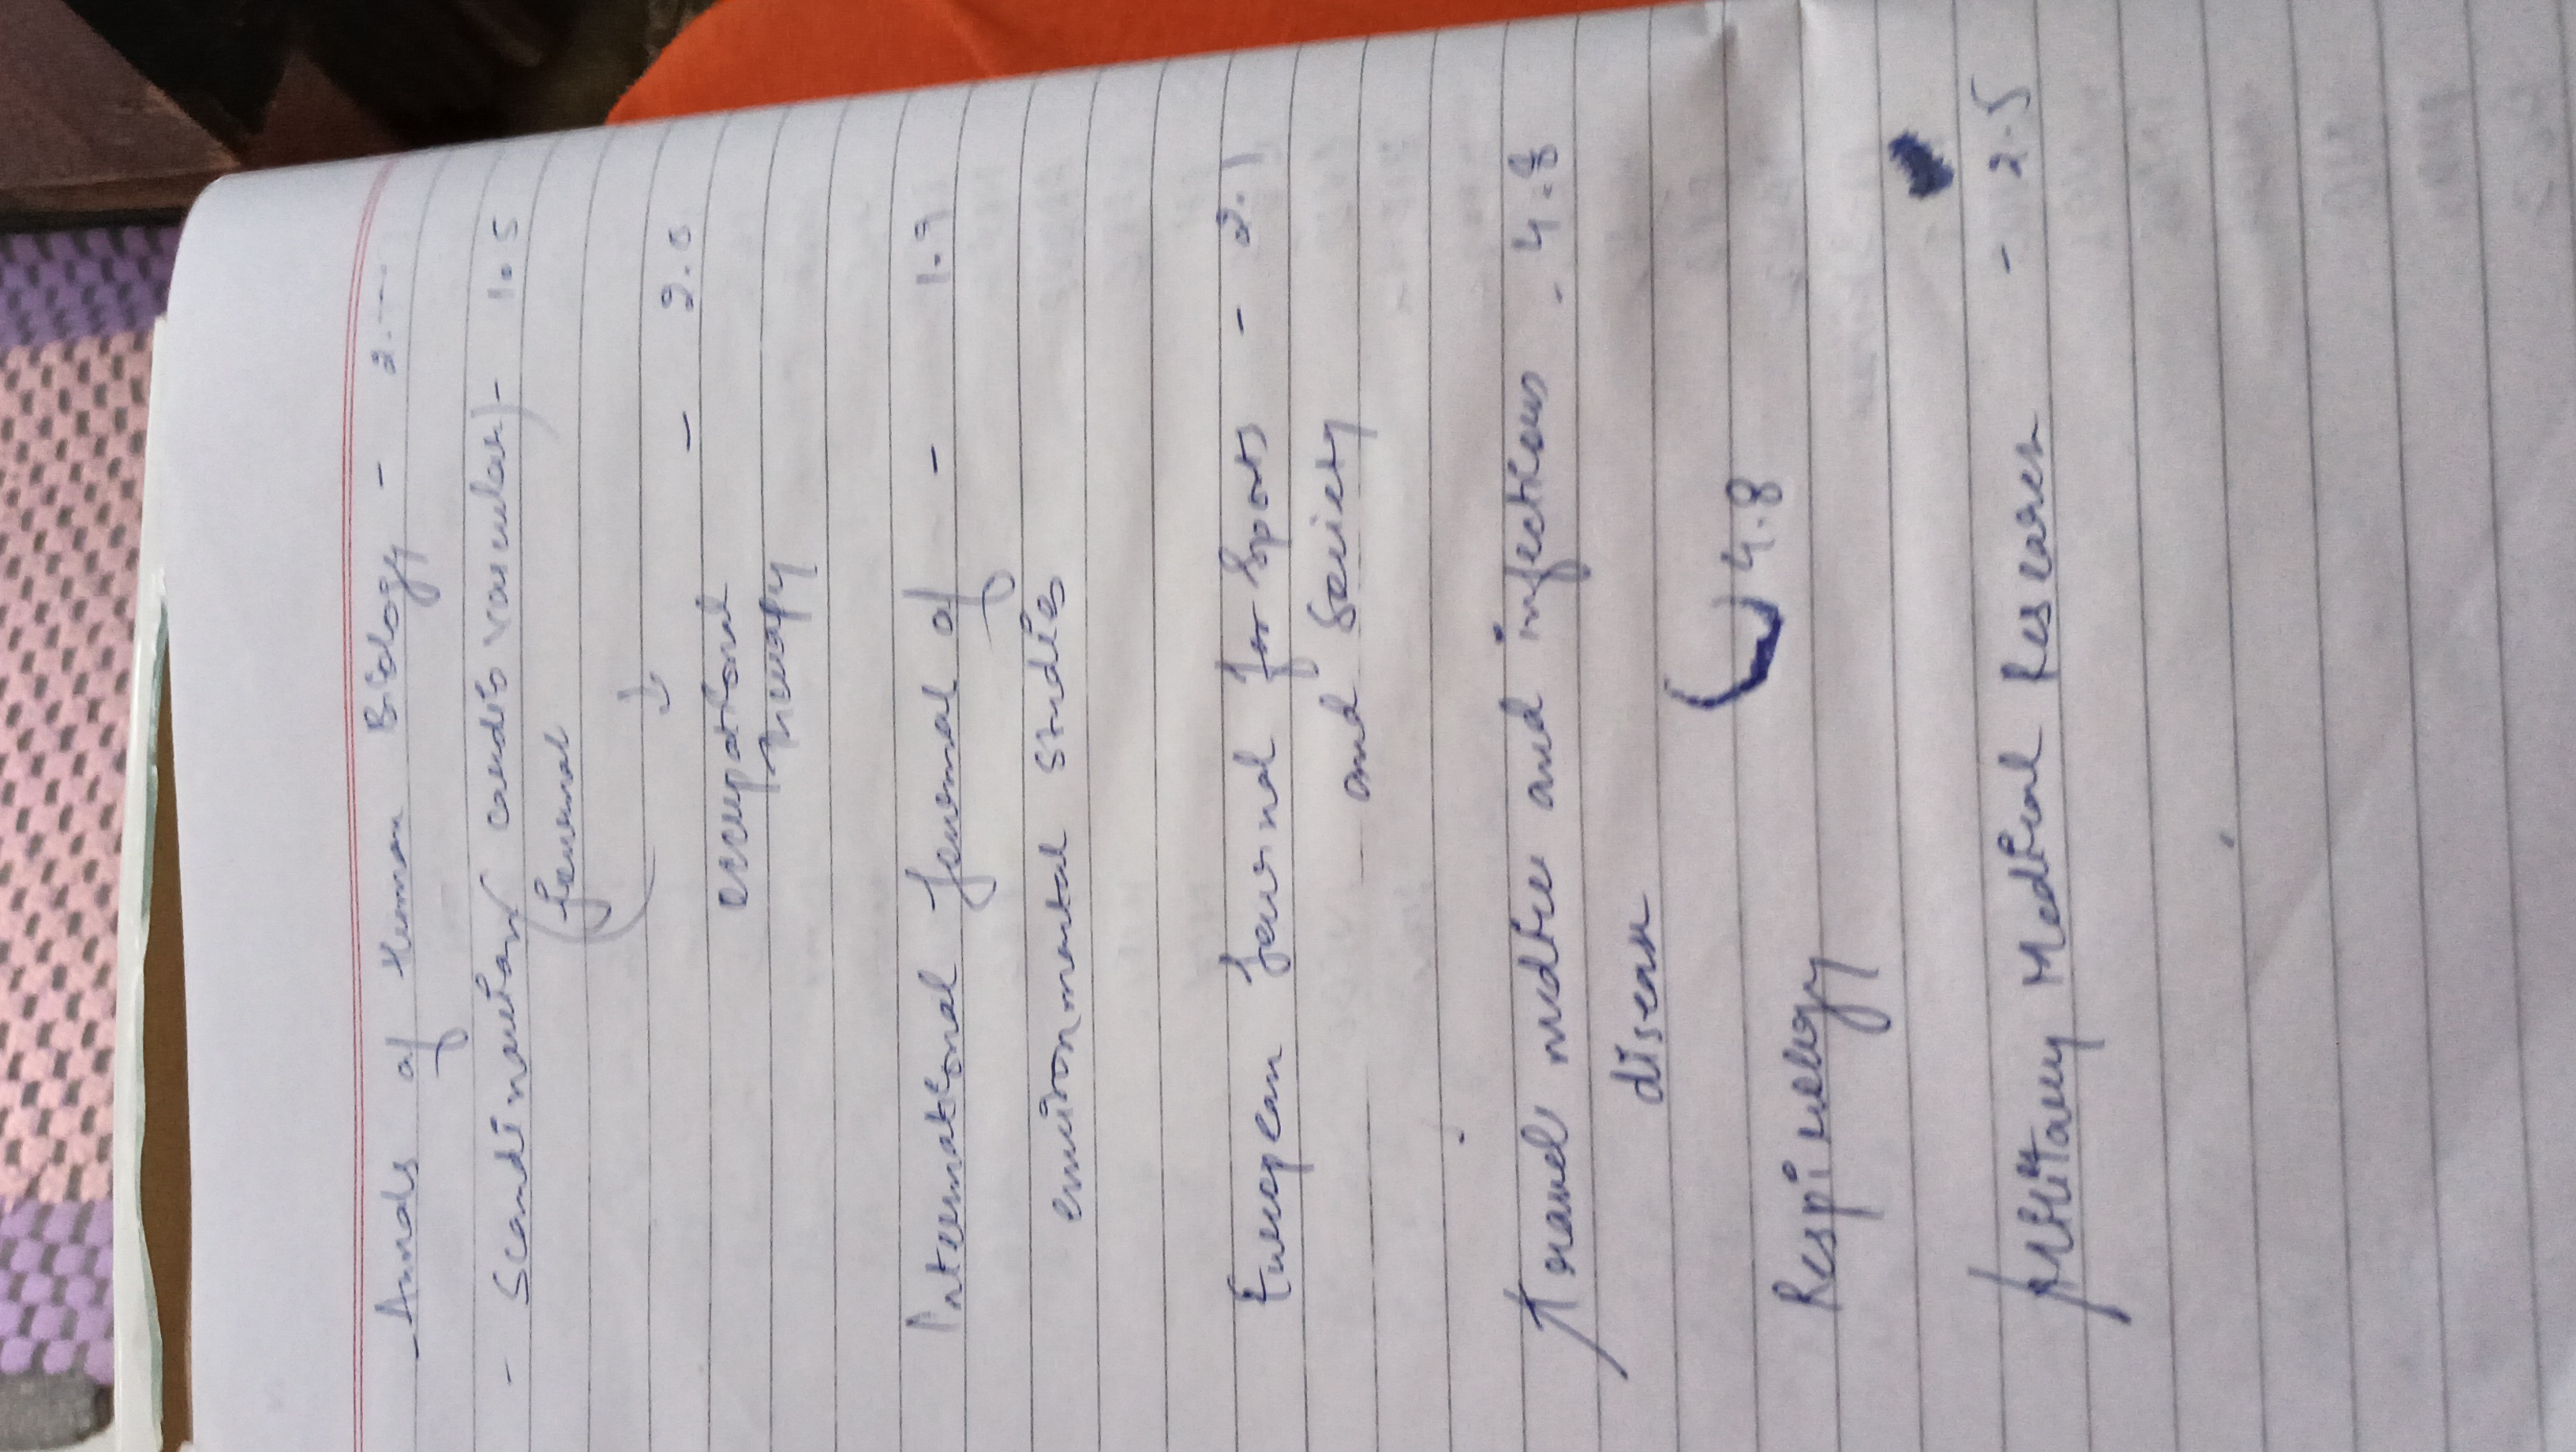 - Annals of Human Biology - 2.---
- Scandinavian cardio vascular - 1.5
journal
↓ - 2.0
occupational
therapy
International journal of - 1.9
environmental studies
European journal for Sports - 2.1
and Society
Travel medice and infectious - 4.8
disease
Respirology 4.8
Military Medical Research - 2.5